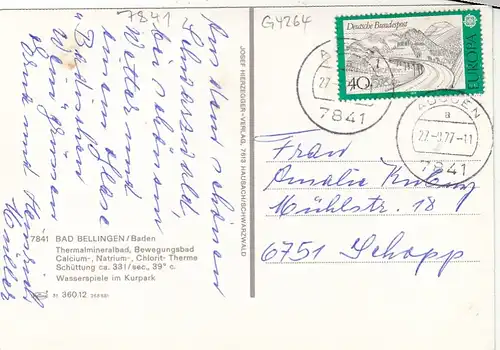 7841
G4264
Aus dem schönen
Schwarzwald,
bei schönem
Wetter und
einem Glase
"Badischen
Wein" grüssen
Erika und Heinrich
Müller
7841 BAD BELLINGEN/Baden
Thermalmineralbad, Bewegungsbad
Calcium-, Natrium-, Chlorit- Therme
Schüttung ca. 331/sec., 39° c.
Wasserspiele im Kurpark
360.12
JOSEF HERZEGGER-VERLAG, 7613 HAUSACH/SCHWARZWALD
Deutsche Bundespost
40
EUROPA
7841
AUGGEN
a
22.-9.77-11
7841
Frau
Amalie
Mühlstr. 18
6751 Schopp